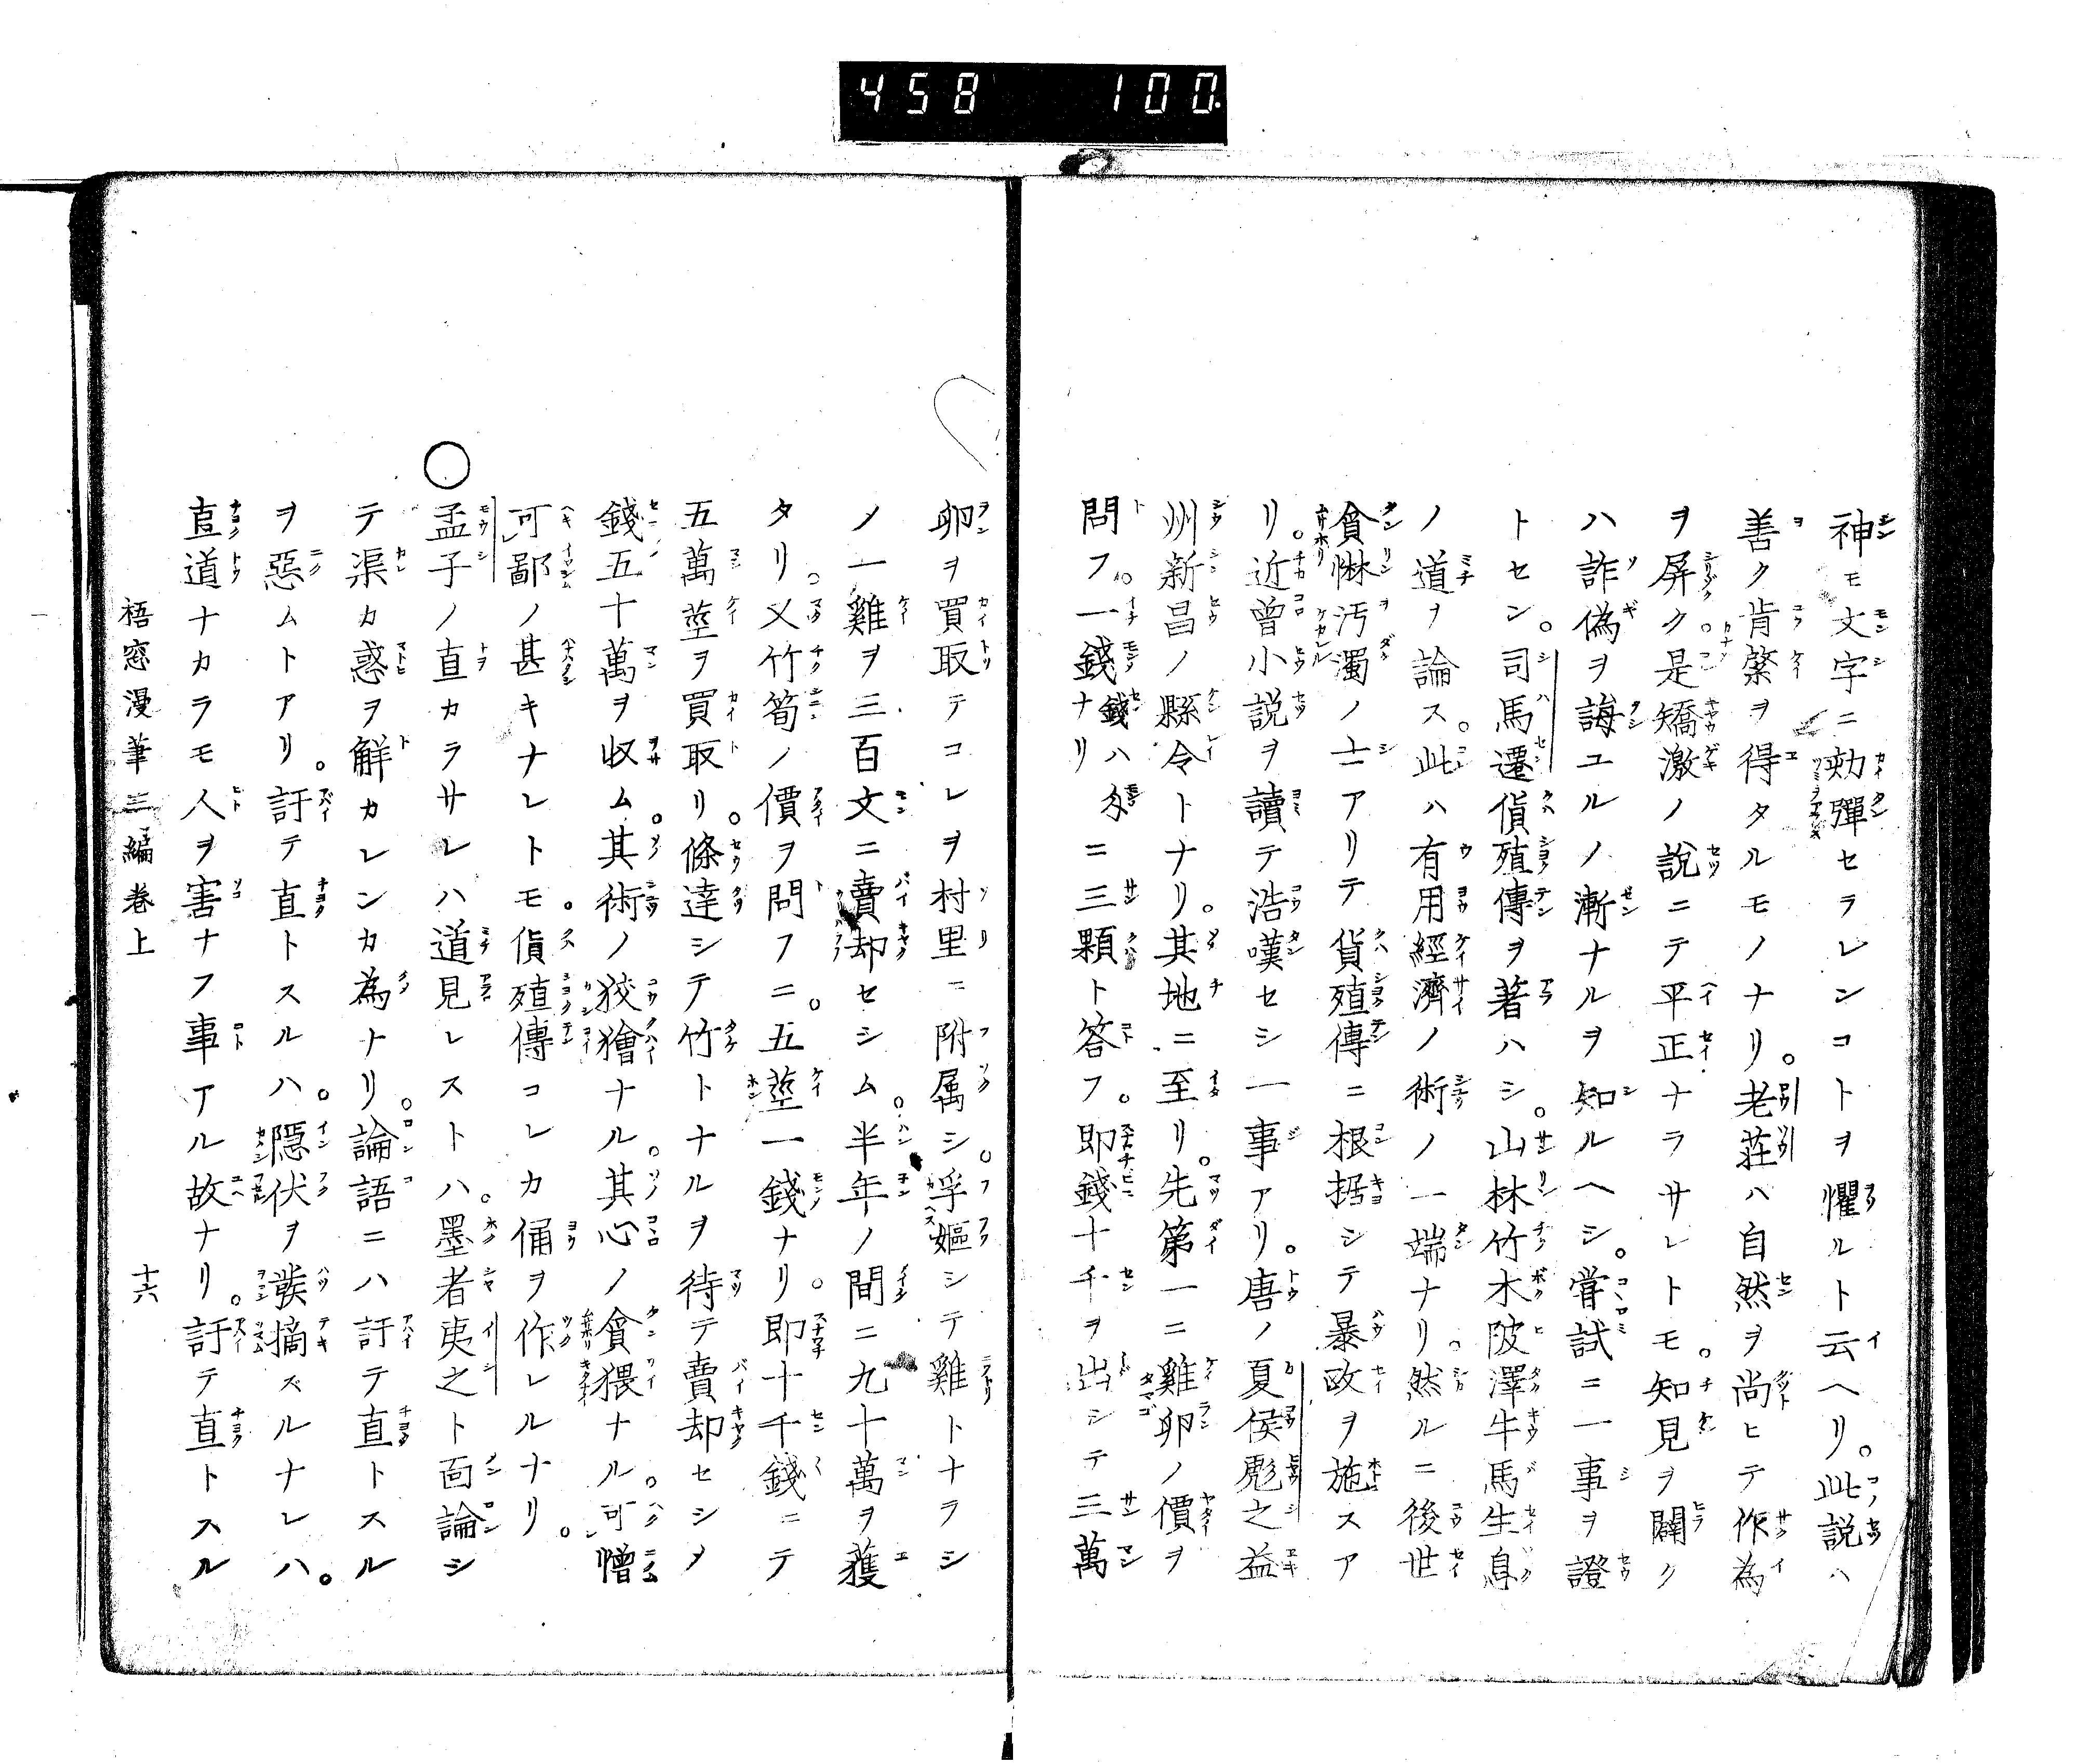 458 100
神モ文字ニ劾彈セラレンコトヲ懼ルト云ヘリ。此説ハ
善ク肯綮ヲ得タルモノナリ。老莊ハ自然ヲ尚ヒテ作為
ヲ屏ク。是矯激ノ説ニテ平正ナラサレトモ。知見ヲ闢ク
ハ詐偽ヲ誨ユルノ漸ナルヲ知ルヘシ。嘗試ニ一事ヲ證
トセン。司馬遷貨殖傳ヲ著ハシ。山林竹木陂澤牛馬生息
ノ道ヲ論ス。此ハ有用經濟ノ術ノ一端ナリ。然ルニ後世
貪惏汚濁ノ士アリテ貨殖傳ニ根据シテ暴政ヲ施スア
リ。近曾小説ヲ讀テ浩嘆セシ一事アリ。唐ノ夏侯彪之益
州新昌ノ縣令トナリ。其地ニ至リ。先第一ニ雞卵ノ價ヲ
問フ。一錢錢ハ匁ナリニ三顆ト答フ。即錢十千ヲ出シテ三萬
卵ヲ買取テコレヲ村里ニ附属シ。孚嫗シテ雞トナラシ
ノ一雞ヲ三百文ニ賣却セシム。半年ノ間ニ九十萬ヲ獲
タリ。又竹筍ノ價ヲ問フニ。五莖一錢ナリ。即十千錢ニテ
五萬莖ヲ買取リ。條達シテ竹トナルヲ待テ賣却セシメ
錢五十萬ヲ収ム。其術ノ狡獪ナル。其心ノ貪猥ナル。可憎
可鄙ノ甚キナレトモ。貨殖傳コレカ俑ヲ作レルナリ。
○孟子ノ直カラサレハ道見レストハ。墨者夷之ト面論シ
テ渠カ惑ヲ解カレンカ為ナリ。論語ニハ訐テ直トスル
ヲ惡ムトアリ。訐テ直トスルハ。隱伏ヲ發摘ズルナレハ。
直道ナカラモ人ヲ害ナフ事アル故ナリ。訐テ直トスル
梧窓漫筆三編卷上 十六